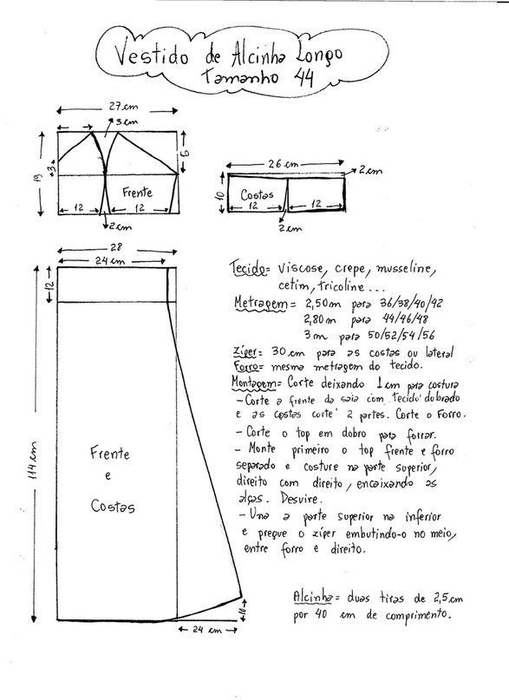 Vestido de Alcinha Longo
Tamanho 44
27 cm
3 cm
3
19
9
Frente
12
12
2 cm
26 cm
2 cm
10
Costas
12
12
2 cm
28
24 cm
12
114 cm
Frente
e
Costas
11
24 cm
Tecido= viscose, crepe, musseline,
cetim, tricoline...
Metragem = 2,50m para 36/38/40/42
2,80m para 44/46/48
3m para 50/52/54/56
Zíper= 30 cm para as costas ou lateral
Forro= mesma metragem do tecido.
Montagem= Corte deixando 1cm para costura
- Corte a frente da saia com tecido dobrado
e as costas corte 2 partes. Corte o forro.
- Corte o top em dobro para forrar.
- Monte primeiro o top frente e forro
separado e costure na parte superior,
direito com direito, encaixando as
alças. Desvire.
- Una a parte superior na inferior
e pregue o zíper embutindo-o no meio,
entre forro e direito.
Alcinha= duas tiras de 2,5cm
por 40 cm de comprimento.